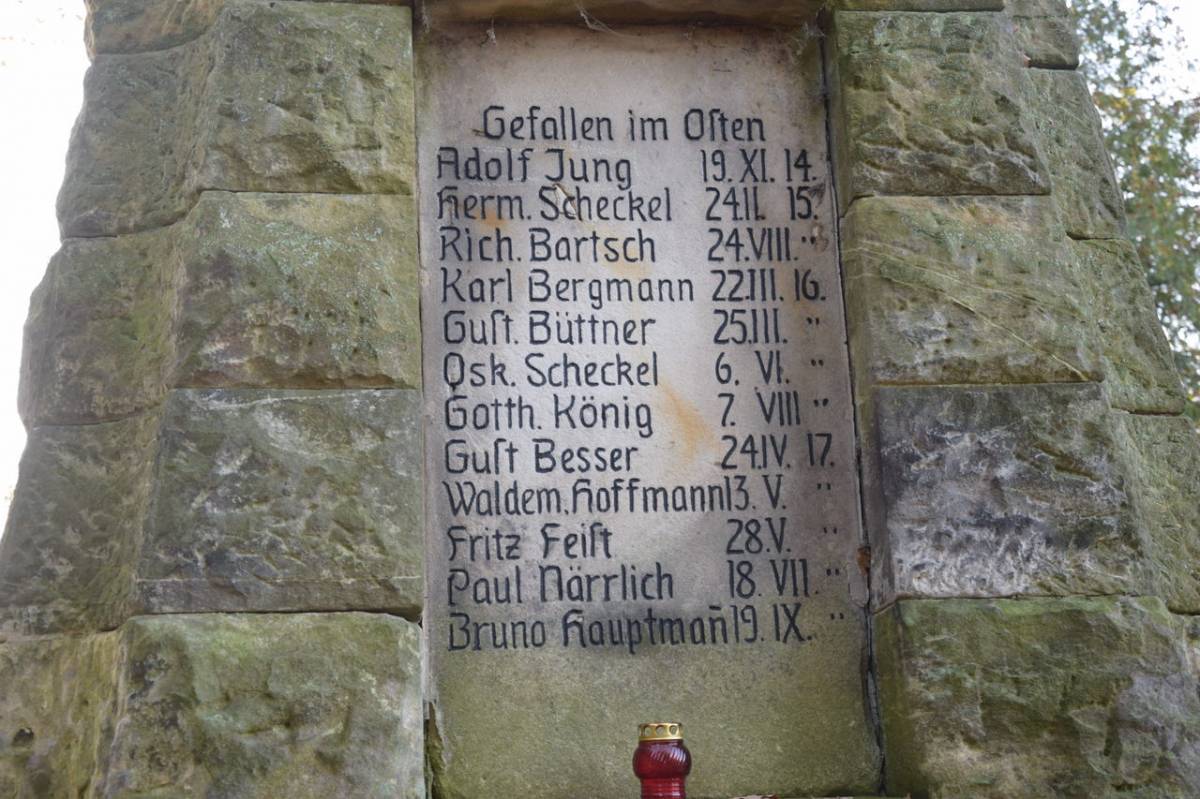 Gefallen im Oſten
Adolf Jung 19. XI. 14.
Herm. Scheckel 24.II. 15.
Rich. Bartsch 24.VIII. "
Karl Bergmann 22.III. 16.
Guſt. Büttner 25.III. "
Osk. Scheckel 6. VI. "
Gotth. König 7. VIII "
Guſt Besser 24.IV. 17.
Waldem. Hoffmann 13. V. "
Fritz Feiſt 28.V. "
Paul Närrlich 18. VII. "
Bruno Hauptman̄ 19. IX. "